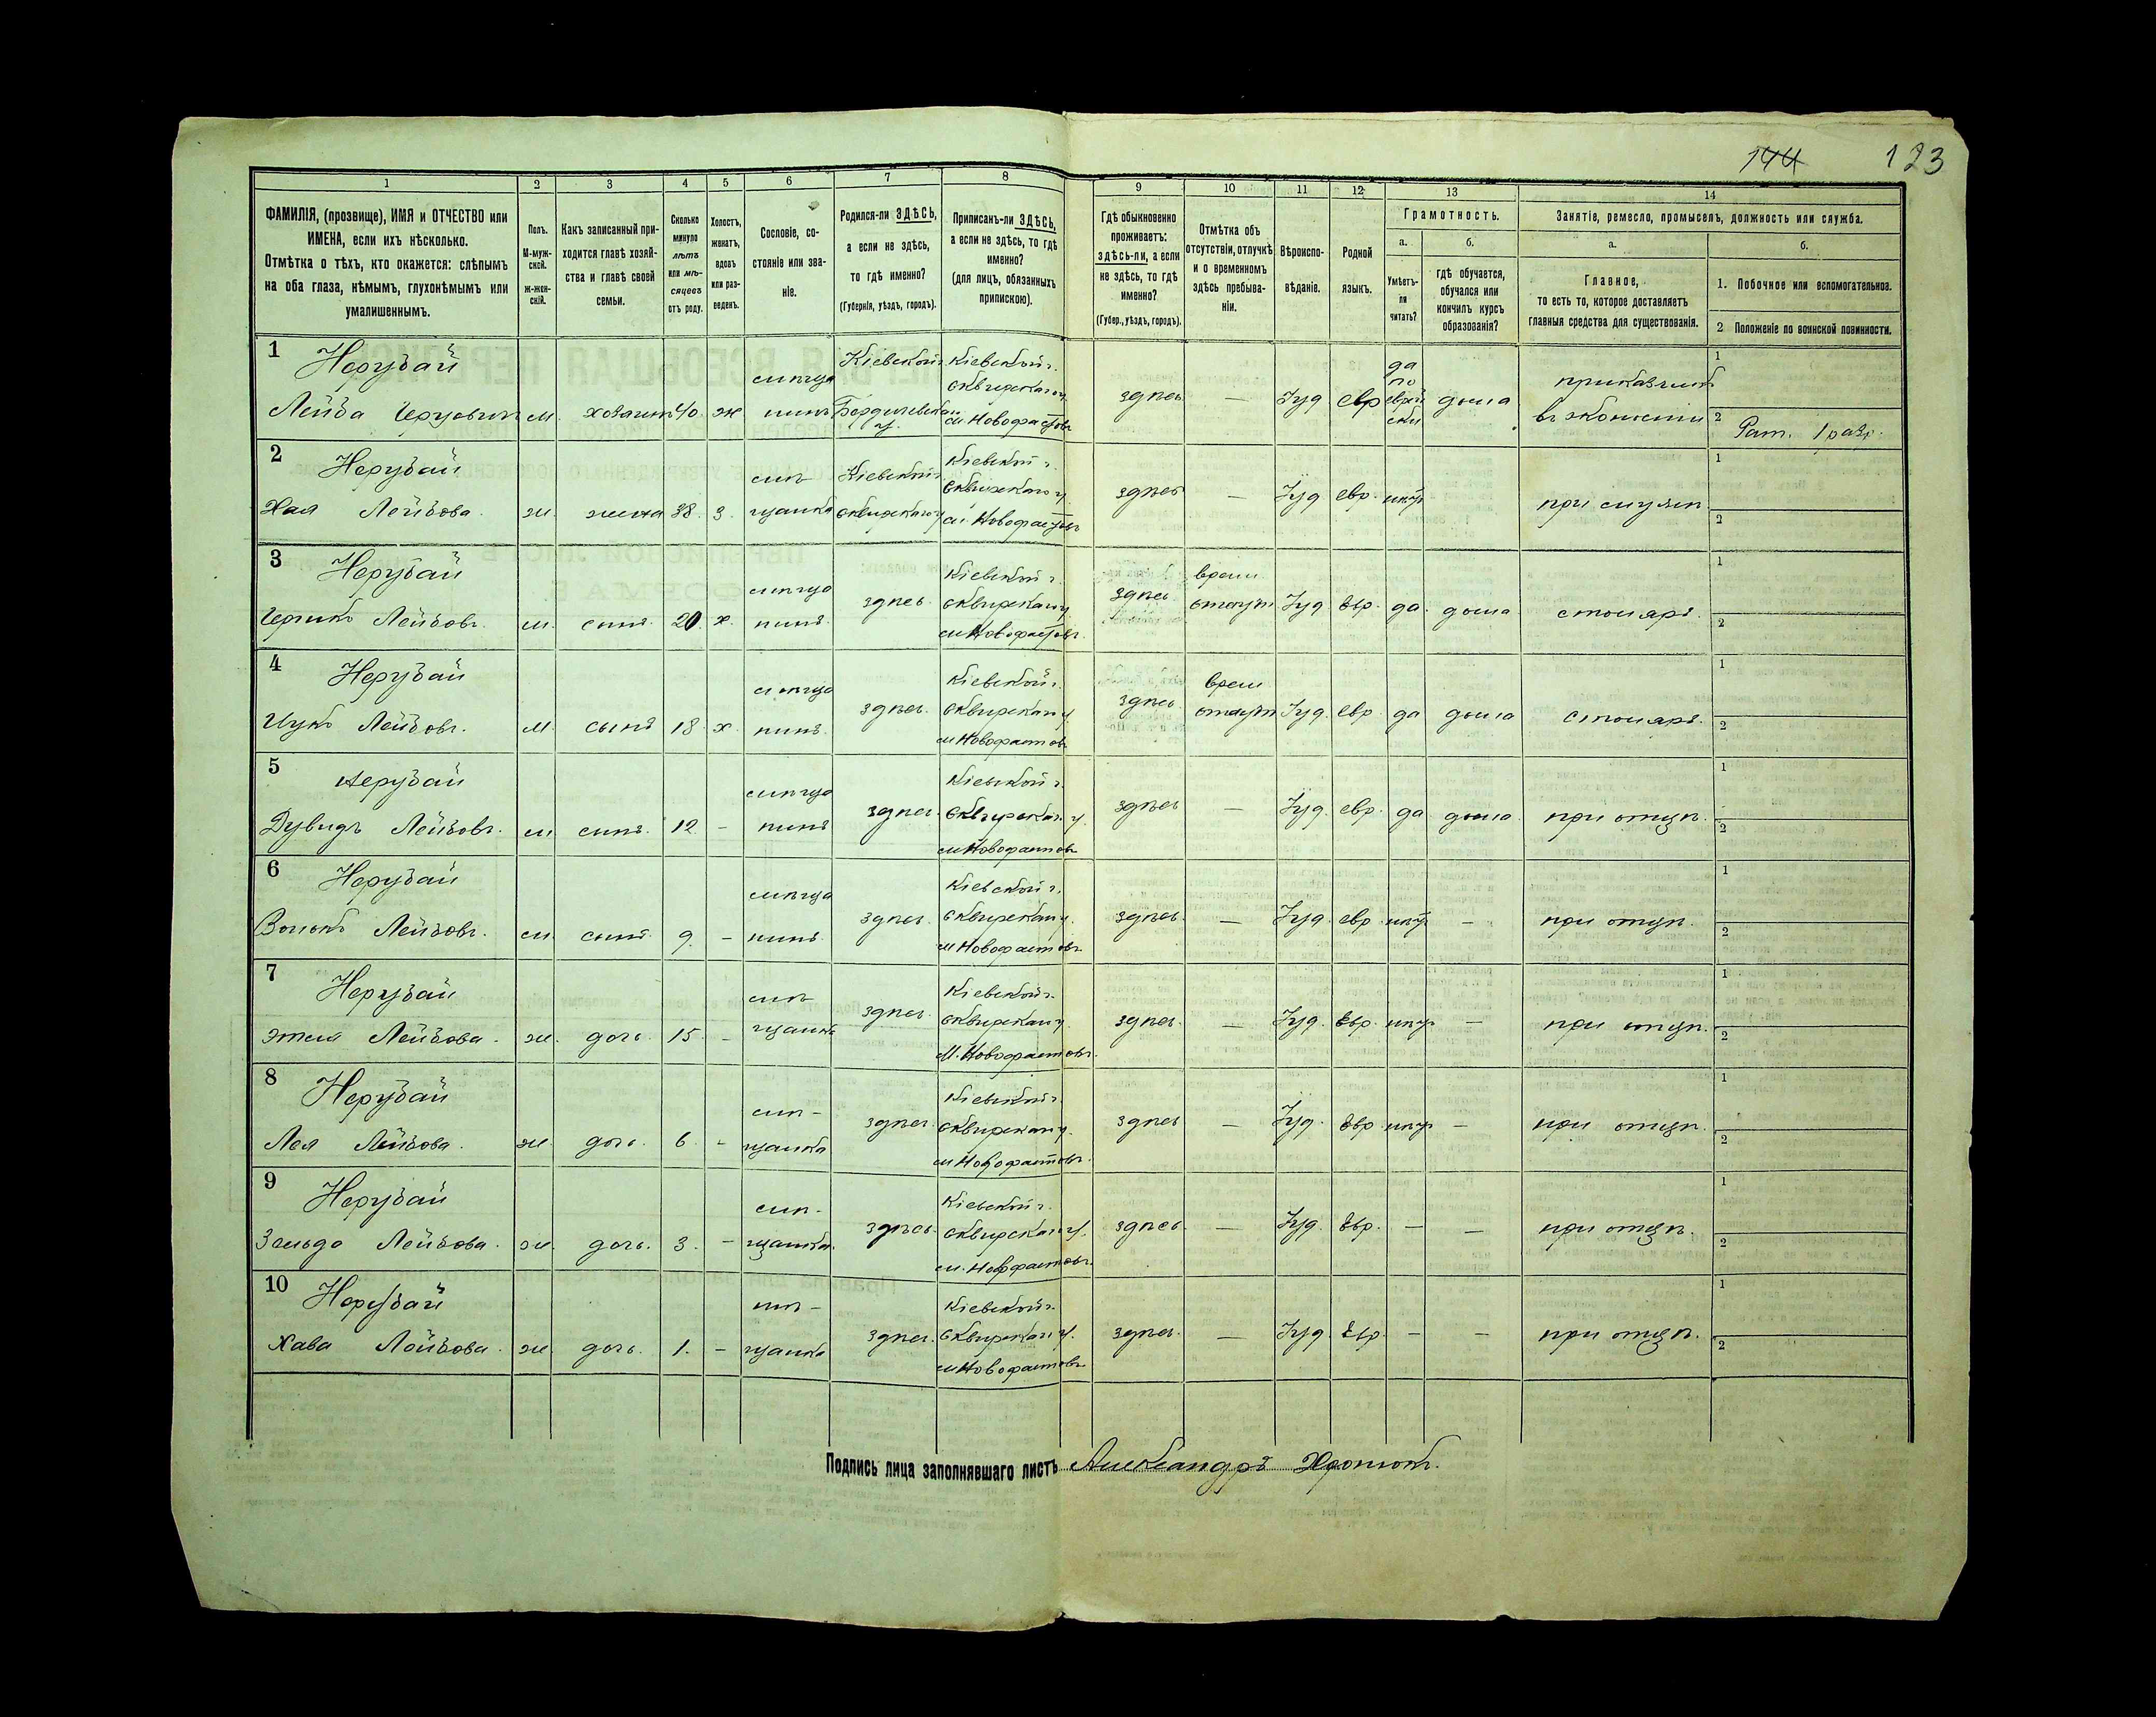 144 123
1 2 3 4 5 6 7 8 9 10 11 12 13 14
ФАМИЛІЯ, (прозвище), ИМЯ и ОТЧЕСТВО или
ИМЕНА, если ихъ нѣсколько.
Отмѣтка о тѣхъ, кто окажется: слѣпымъ
на оба глаза, нѣмымъ, глухонѣмымъ или
умалишеннымъ.
Полъ.
М-муж-
ской.
ж-жен-
скій.
Какъ записанный при-
ходится главѣ хозяй-
ства и главѣ своей
семьи.
Сколько
минуло
лѣтъ
или мѣ-
сяцевъ
отъ роду.
Холостъ,
женатъ,
вдовъ
или раз-
веденъ.
Сословіе, со-
стояніе или зва-
ніе.
Родился-ли ЗДѢСЬ,
а если не здѣсь,
то гдѣ именно?
(Губернія, уѣздъ, городъ).
Приписанъ-ли ЗДѢСЬ,
а если не здѣсь, то гдѣ
именно?
(для лицъ, обязанныхъ
припискою).
Гдѣ обыкновенно
проживаетъ:
здѣсь-ли, а если
не здѣсь, то гдѣ
именно?
(Губер., уѣздъ, городъ).
Отмѣтка объ
отсутствіи, отлучкѣ
и о временномъ
здѣсь пребыва-
ніи.
Вѣроиспо-
вѣданіе.
Родной
языкъ.
Грамотность.
а.
Умѣетъ-
ли
читать?
б.
гдѣ обучается,
обучался или
кончилъ курсъ
образованія?
Занятіе, ремесло, промыселъ, должность или служба.
а.
Главное,
то есть то, которое доставляетъ
главныя средства для существованія.
б.
1. Побочное или вспомогательное.
2 Положеніе по воинской повинности.
1 Нерубай
Лейба м. 40. ж
мѣща
нинъ
Кіевской г.
Бердичевскаго
у.
Кіевской г.
Сквирскаго у.
м Новофастовъ
здѣсь — Іуд евр
да
по
еврей
ски
дома
въ экономіи
1
2 Рат. 1 разр.
2 Нерубай
Хая Лейбова. ж. жена 38. з.
мѣ
щанка
Кіевской г.
Сквирскаго у
Кіевской г.
Сквирскаго у.
м. Новофастовъ
здѣсь — Іуд евр. при мужѣ
1
2
3 Нерубай
Лейбовъ. м. сынъ. 20. х.
мѣща
нинъ.
здѣсь.
Кіевской г.
Сквирскаго у.
м Новофастовъ.
здѣсь
врем.
отсут
Іуд. Евр. да. дома столяръ.
1
2
4 Нерубай
Ицко Лейбовъ. м. сынъ 18. х.
мѣща
нинъ.
здѣсь.
Кіевской г.
Сквирскаго у.
м Новофастовъ
здѣсь
врем
отсут
Іуд. Евр. да дома столяръ.
1
2
5 Нерубай
Дувидъ Лейбовъ. м сынъ. 12 —
мѣща
нинъ
здѣсь.
Кіевской г.
Сквирскаго у.
м Новофастовъ
здѣсь — Іуд. евр. да дома. при отцѣ.
1
2
6 Нерубай
Лейбовъ. м. сынъ. 9. —
мѣща
нинъ.
здѣсь.
Кіевской г.
Сквирскаго у.
м Новофастовъ.
здѣсь. — Іуд. евр. — при отцѣ.
1
2
7 Нерубай
Этля Лейбова. ж. дочь. 15. —
мѣ
щанка
здѣсь.
Кіевской г.
Сквирскаго у.
м. Новофастовъ.
здѣсь. — Іуд. Евр. — при отцѣ.
1
2
8 Нерубай
Лея Лейбова. ж. дочь. 6. —
мѣ-
щанка
здѣсь.
Кіевской г.
Сквирскаго у.
м Новофастовъ.
здѣсь — Іуд. Евр. — при отцѣ.
1
2
9 Нерубай
Зельда Лейбова. ж. дочь. 3. —
мѣ-
щанка.
здѣсь.
Кіевской г.
Сквирскаго у.
м. Новофастовъ.
здѣсь. — Іуд. Евр. — — при отцѣ.
1
2
10 Нерубай
Хава Лейбова. ж дочь. 1. —
мѣ-
щанка
здѣсь.
Кіевской г.
Сквирскаго у.
м Новофастовъ
здѣсь. — Іуд. Евр. — — при отцѣ.
1
2
Подпись лица заполнявшаго листъ Александръ